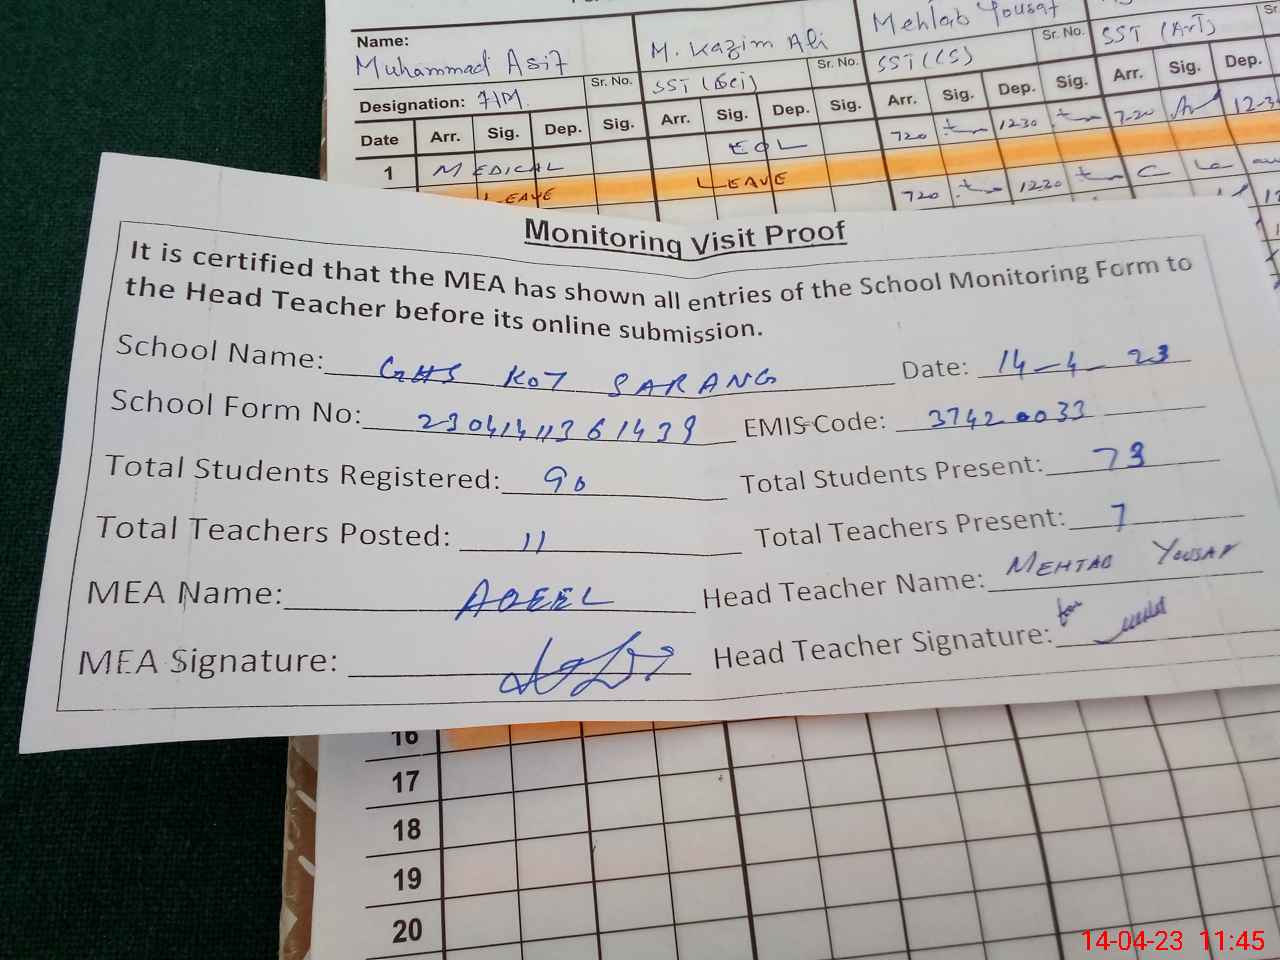 Name:
Muhammad Asif
M. Kazim Ali
Mehtab Yousaf
Sr. No.
SST (Sci)
Sr. No.
SST (CS)
Sr. No.
SST (Art)
Sr.
Designation: HM
Date Arr. Sig. Dep. Sig. Arr. Sig. Dep. Sig. Arr. Sig. Dep. Sig. Arr. Sig. Dep.
1 MEDICAL EOL 720 1230 7-20 12-3
LEAVE LEAVE 720 1220
Monitoring Visit Proof
It is certified that the MEA has shown all entries of the School Monitoring Form to
the Head Teacher before its online submission.
School Name: GHS KOT SARANG Date: 14-4-23
School Form No: 2304141136 1439 EMIS Code: 37420033
Total Students Registered: 90 Total Students Present: 73
Total Teachers Posted: 11 Total Teachers Present: 7
MEA Name: AQEEL Head Teacher Name: MEHTAB YOUSAF
MEA Signature: Head Teacher Signature: for
16
17
18
19
20
14-04-23 11:45